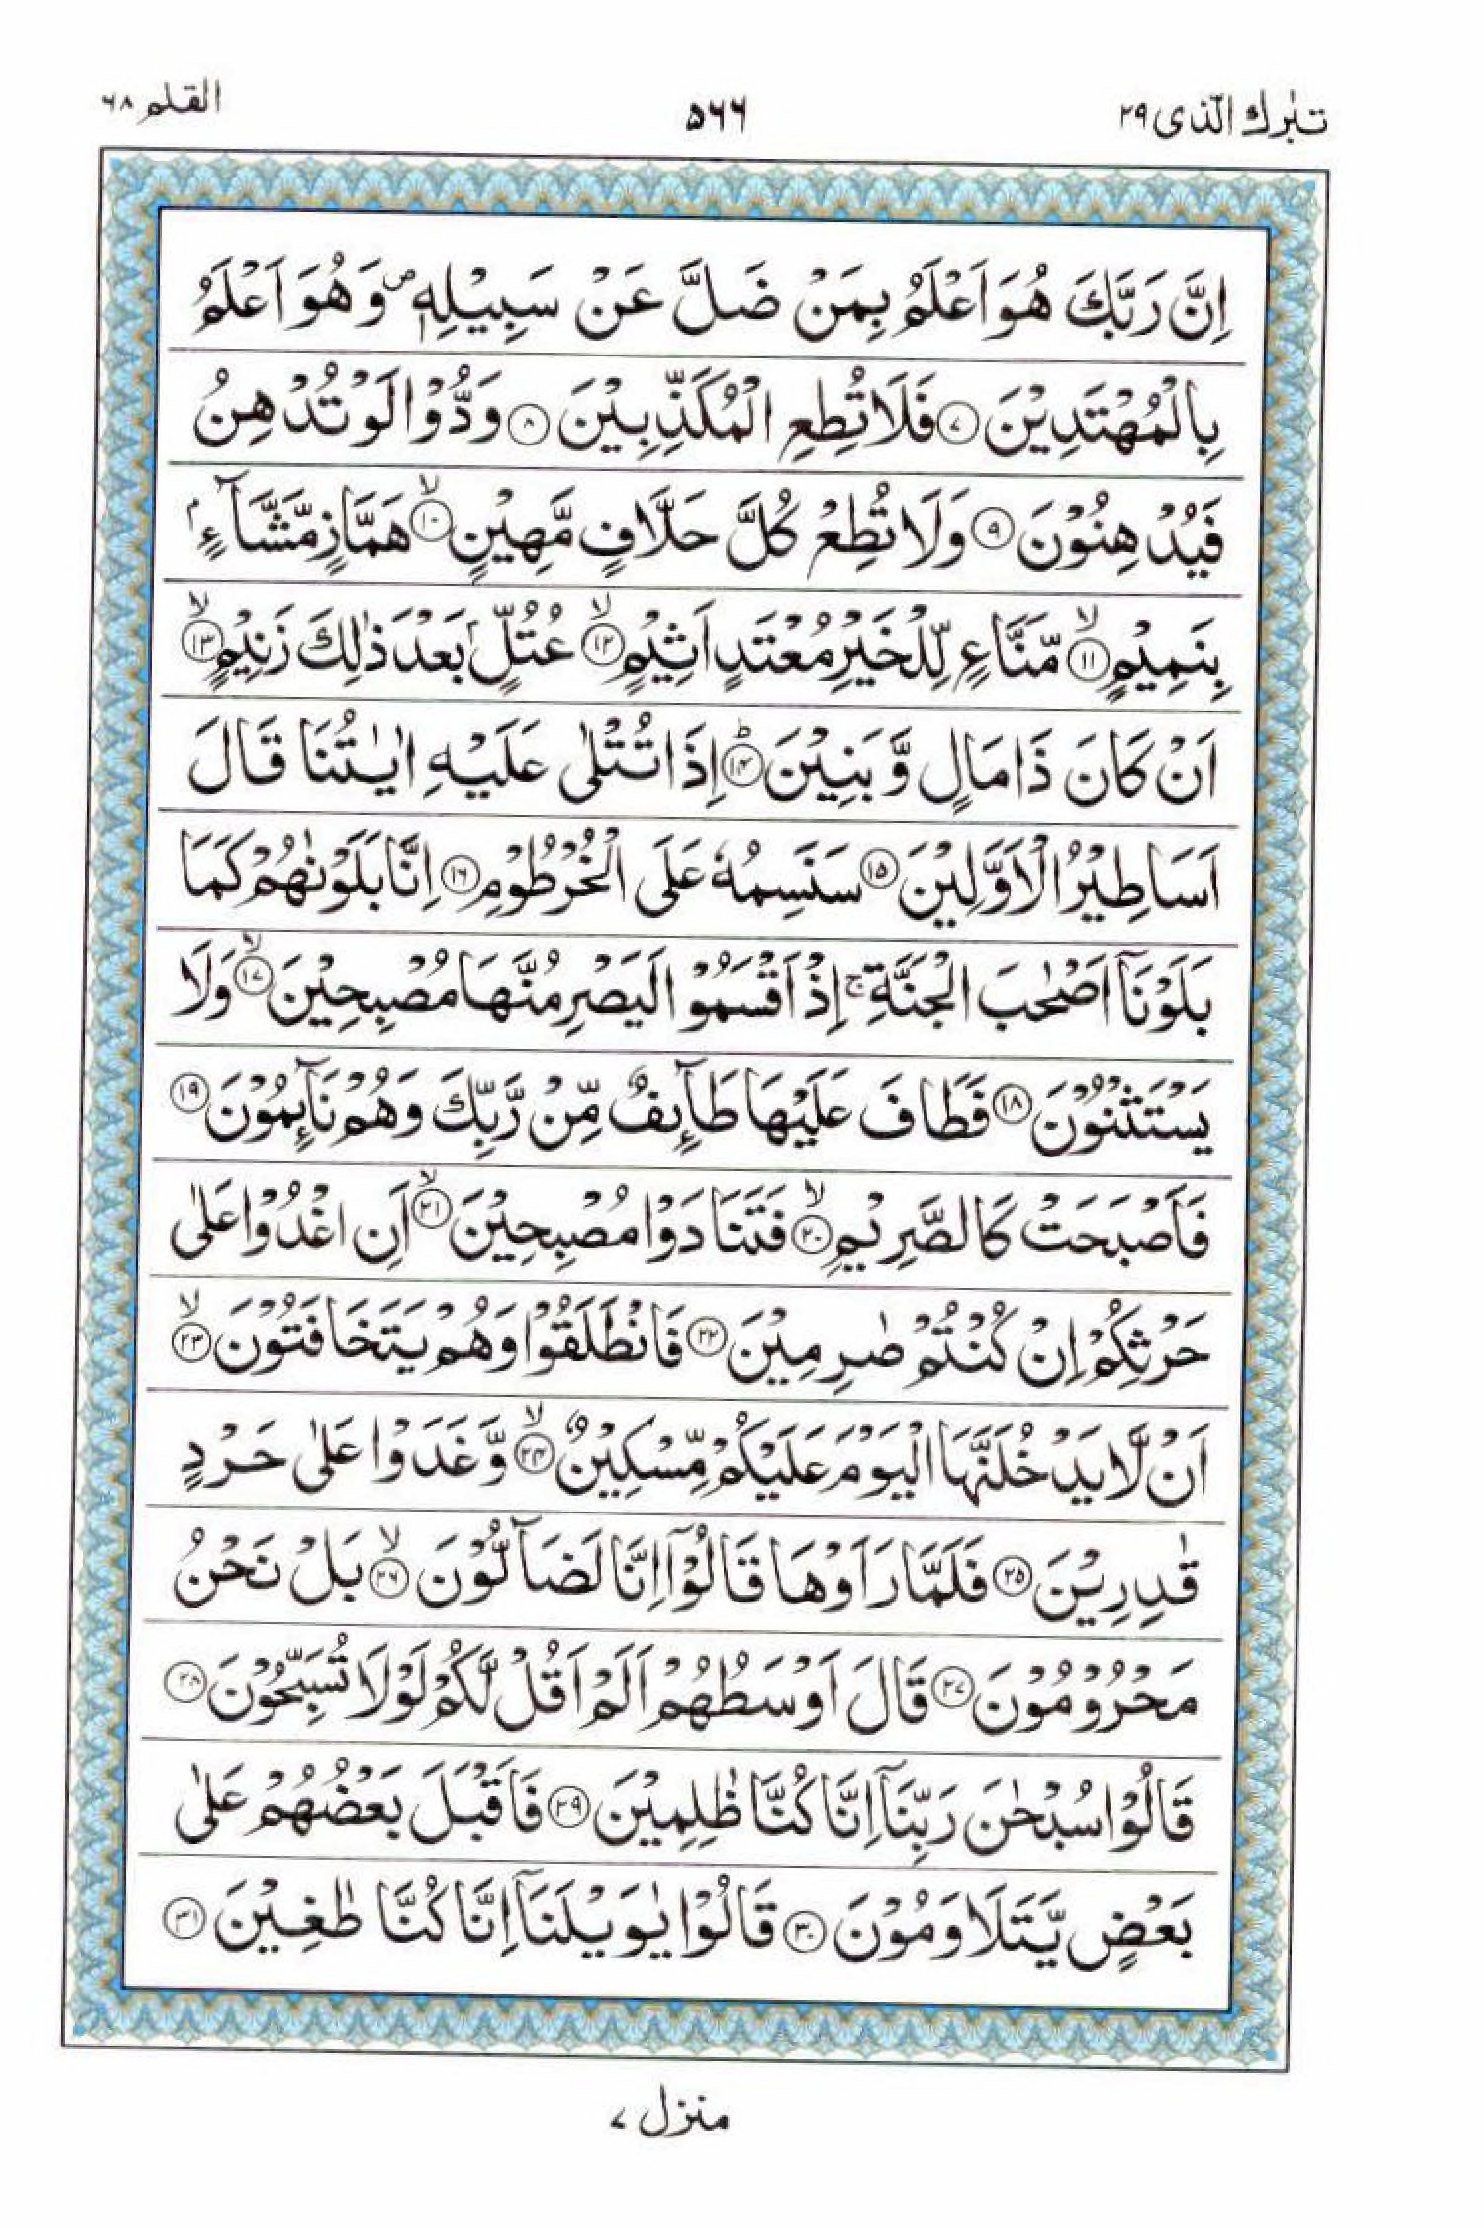 تبٰرك الّذى ٢٩
٥٦٦
القلم ٦٨
اِنَّ رَبَّكَ هُوَ اَعْلَمُ بِمَنْ ضَلَّ عَنْ سَبِيْلِهٖ ۪ وَهُوَ اَعْلَمُ
بِالْمُهْتَدِيْنَ ﴿٧﴾ فَلَا تُطِعِ الْمُكَذِّبِيْنَ ﴿٨﴾ وَدُّوْا لَوْ تُدْهِنُ
فَيُدْهِنُوْنَ ﴿٩﴾ وَلَا تُطِعْ كُلَّ حَلَّافٍ مَّهِيْنٍ ﴿١٠﴾ۙ هَمَّازٍ مَّشَّآءٍۭ
بِنَمِيْمٍ ﴿١١﴾ۙ مَّنَّاعٍ لِّلْخَيْرِ مُعْتَدٍ اَثِيْمٍ ﴿١٢﴾ۙ عُتُلٍّۭ بَعْدَ ذٰلِكَ زَنِيْمٍ ﴿١٣﴾ۙ
اَنْ كَانَ ذَا مَالٍ وَّبَنِيْنَ ﴿١٤﴾ؕ اِذَا تُتْلٰى عَلَيْهِ اٰيٰتُنَا قَالَ
اَسَاطِيْرُ الْاَوَّلِيْنَ ﴿١٥﴾ سَنَسِمُهٗ عَلَى الْخُرْطُوْمِ ﴿١٦﴾ اِنَّا بَلَوْنٰهُمْ كَمَا
بَلَوْنَاۤ اَصْحٰبَ الْجَنَّةِ ۚ اِذْ اَقْسَمُوْا لَيَصْرِمُنَّهَا مُصْبِحِيْنَ ﴿١٧﴾ۙ وَلَا
يَسْتَثْنُوْنَ ﴿١٨﴾ فَطَافَ عَلَيْهَا طَآئِفٌ مِّنْ رَّبِّكَ وَهُمْ نَآئِمُوْنَ ﴿١٩﴾
فَاَصْبَحَتْ كَالصَّرِيْمِ ﴿٢٠﴾ۙ فَتَنَادَوْا مُصْبِحِيْنَ ﴿٢١﴾ۙ اَنِ اغْدُوْا عَلٰى
حَرْثِكُمْ اِنْ كُنْتُمْ صٰرِمِيْنَ ﴿٢٢﴾ فَانْطَلَقُوْا وَهُمْ يَتَخَافَتُوْنَ ﴿٢٣﴾ۙ
اَنْ لَّا يَدْخُلَنَّهَا الْيَوْمَ عَلَيْكُمْ مِّسْكِيْنٌ ﴿٢٤﴾ۙ وَّغَدَوْا عَلٰى حَرْدٍ
قٰدِرِيْنَ ﴿٢٥﴾ فَلَمَّا رَاَوْهَا قَالُوْۤا اِنَّا لَضَآلُّوْنَ ﴿٢٦﴾ۙ بَلْ نَحْنُ
مَحْرُوْمُوْنَ ﴿٢٧﴾ قَالَ اَوْسَطُهُمْ اَلَمْ اَقُلْ لَّكُمْ لَوْلَا تُسَبِّحُوْنَ ﴿٢٨﴾
قَالُوْا سُبْحٰنَ رَبِّنَاۤ اِنَّا كُنَّا ظٰلِمِيْنَ ﴿٢٩﴾ فَاَقْبَلَ بَعْضُهُمْ عَلٰى
بَعْضٍ يَّتَلَاوَمُوْنَ ﴿٣٠﴾ قَالُوْا يٰوَيْلَنَاۤ اِنَّا كُنَّا طٰغِيْنَ ﴿٣١﴾
منزل ٧